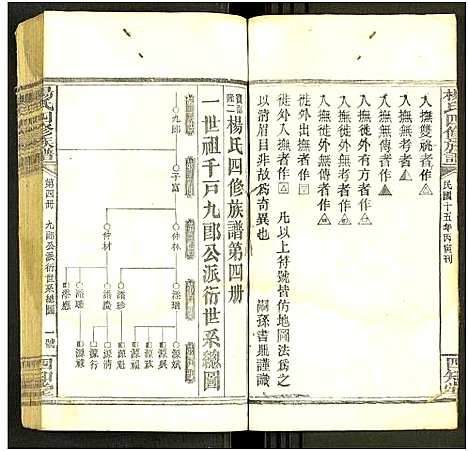 楊氏四修族譜
民國十五年丙寅刊
四知堂
入撫雙祧者作
入撫無考者作
入撫無傳者作
徙外有方者作
徙外無考者作
徙外出撫者作
徙外入撫者作 凡以上符號皆仿地圖法爲之
以清眉目非故爲奇異也
嗣孫書鼎謹識
楊氏四修族譜第四册
一世祖千戸九郎公派衍世系總圖
九郎
子富
仲林
仲材
源斌
源興
源政
源福
源行
源禄
楊氏四修族譜
第四册 九郎公派衍世系總圖 一號
四知堂